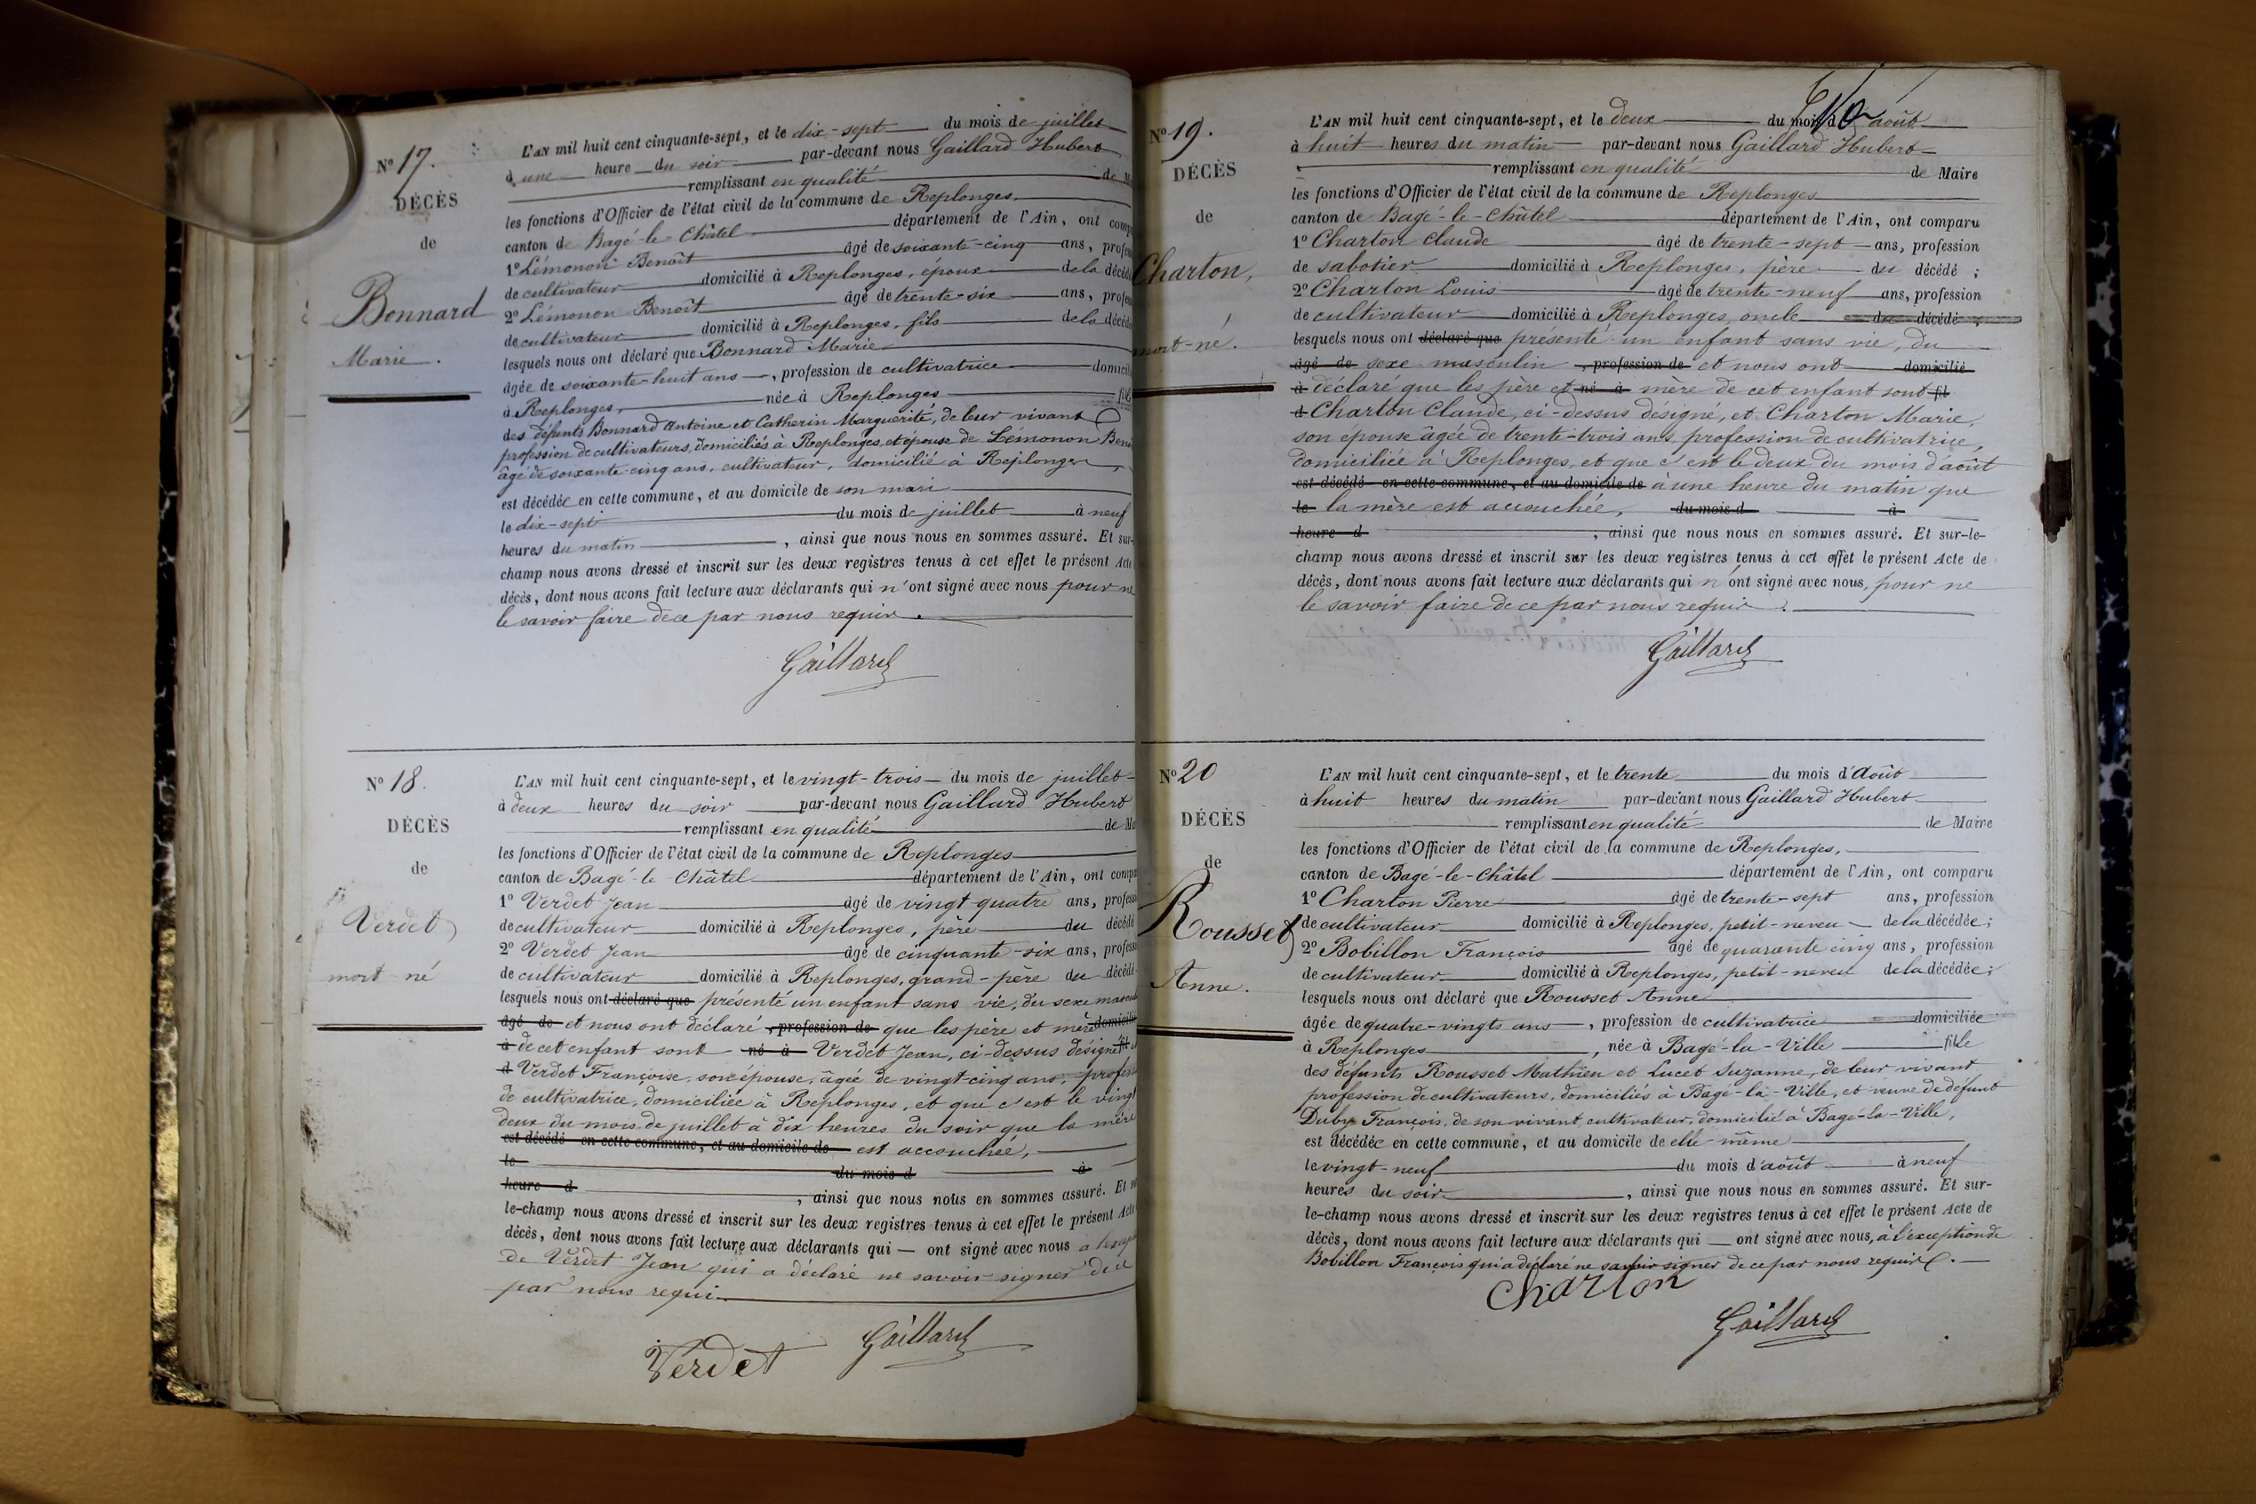 N° 17.
DÉCÈS
de
Bonnard
Marie.
L'AN mil huit cent cinquante-sept, et le dix-sept du mois de juillet
à une heure du soir par-devant nous Gaillard Hubert
remplissant en qualité de
les fonctions d'Officier de l'état civil de la commune de Replonges
canton de Bagé-le-Châtel département de l'Ain, ont
1° Lémonon Benoît âgé de soixante-cinq ans,
de cultivateur domicilié à Replonges, époux de la
2° Lémonon Benoît âgé de trente-six ans,
de cultivateur domicilié à Replonges, fils de la
lesquels nous ont déclaré que Bonnard Marie
âgée de soixante-huit ans, profession de cultivatrice
à Replonges, née à Replonges
des défunts Bonnard Antoine et Catherin Marguerite, de leur vivant
profession de cultivateurs, domiciliés à Replonges, et épouse de Lémonon
âgé de soixante-cinq ans, cultivateur, domicilié à Replonges,
est décédée en cette commune, et au domicile de son mari
le dix-sept du mois de juillet à neuf
heures du matin, ainsi que nous nous en sommes assuré. Et sur-
champ nous avons dressé et inscrit sur les deux registres tenus à cet effet le présent Acte
décès, dont nous avons fait lecture aux déclarants qui n'ont signé avec nous pour ne
le savoir faire de ce par nous requis.
Gaillard
N° 18.
DÉCÈS
de
Verdet
mort né
L'AN mil huit cent cinquante-sept, et le vingt-trois du mois de juillet
à deux heures du soir par-devant nous Gaillard Hubert
remplissant en qualité de
les fonctions d'Officier de l'état civil de la commune de Replonges
canton de Bagé-le-Châtel département de l'Ain, ont
1° Verdet Jean âgé de vingt quatre ans,
de cultivateur domicilié à Replonges, père du décédé
2° Verdet Jean âgé de cinquante-six ans,
de cultivateur domicilié à Replonges, grand-père du décédé
lesquels nous ont déclaré que présenté un enfant sans vie, du sexe
âgé de et nous ont déclaré, profession de que les père et mère
à de cet enfant sont né à Verdet Jean, ci-dessus désigné
d Verdet Françoise, son épouse, âgée de vingt cinq ans,
de cultivatrice, domiciliée à Replonges, et que c'est le vingt
deux du mois de juillet à dix heures du soir que la mère
est décédé en cette commune, et au domicile de est accouchée,
le du mois d à
heure d, ainsi que nous nous en sommes assuré. Et
le-champ nous avons dressé et inscrit sur les deux registres tenus à cet effet le présent Acte
décès, dont nous avons fait lecture aux déclarants qui ont signé avec nous
de Verdet Jean qui a déclaré ne savoir signer de ce
par nous requis.
Verdet Gaillard
N° 19.
DÉCÈS
de
Charton,
mort-né.
L'AN mil huit cent cinquante-sept, et le deux du mois d'août
à huit heures du matin par-devant nous Gaillard Hubert
remplissant en qualité de Maire
les fonctions d'Officier de l'état civil de la commune de Replonges
canton de Bagé-le-Châtel département de l'Ain, ont comparu
1° Charton Claude âgé de trente-sept ans, profession
de sabotier domicilié à Replonges, père du décédé;
2° Charton Louis âgé de trente-neuf ans, profession
de cultivateur domicilié à Replonges, oncle du décédé;
lesquels nous ont déclaré que présenté un enfant sans vie, du
âgé de sexe masculin, profession de et nous ont domicilié
à déclaré que les père et né à mère de cet enfant sont fil
d Charton Claude, ci-dessus désigné, et Charton Marie,
son épouse âgée de trente-trois ans, profession de cultivatrice,
domiciliée à Replonges, et que c'est le deux du mois d'août
est décédé en cette commune, et au domicile de à une heure du matin que
le la mère est accouchée, du mois d à
heure d, ainsi que nous nous en sommes assuré. Et sur-le-
champ nous avons dressé et inscrit sur les deux registres tenus à cet effet le présent Acte de
décès, dont nous avons fait lecture aux déclarants qui n'ont signé avec nous, pour ne
le savoir faire de ce par nous requis.
Gaillard
N° 20
DÉCÈS
de
Rousset
Anne.
L'AN mil huit cent cinquante-sept, et le trente du mois d'Août
à huit heures du matin par-devant nous Gaillard Hubert
remplissant en qualité de Maire
les fonctions d'Officier de l'état civil de la commune de Replonges,
canton de Bagé-le-Châtel département de l'Ain, ont comparu
1° Charton Pierre âgé de trente-sept ans, profession
de cultivateur domicilié à Replonges, petit-neveu de la décédée;
2° Bobillon François âgé de quarante cinq ans, profession
de cultivateur domicilié à Replonges, petit-neveu de la décédée;
lesquels nous ont déclaré que Rousset Anne
âgée de quatre-vingts ans, profession de cultivatrice domiciliée
à Replonges, née à Bagé-la-Ville fille
des défunts Rousset Mathieu et Lucet Suzanne, de leur vivant
profession de cultivateurs, domiciliés à Bagé-la-Ville, et veuve de défunt
Duby François, de son vivant cultivateur, domicilié à Bagé-la-Ville,
est décédée en cette commune, et au domicile de elle-même
le vingt-neuf du mois d'août à neuf
heures du soir, ainsi que nous nous en sommes assuré. Et sur-
le-champ nous avons dressé et inscrit sur les deux registres tenus à cet effet le présent Acte de
décès, dont nous avons fait lecture aux déclarants qui ont signé avec nous, à l'exception de
Bobillon François qui a déclaré ne savoir signer de ce par nous requis.
Charton
Gaillard